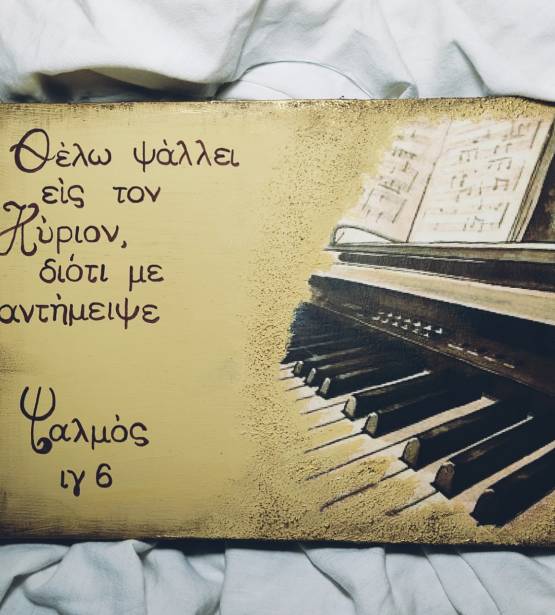 Θέλω ψάλλει
εἰς τον
Κύριον,
διότι με
αντήμειψε
Ψαλμός
ιγ 6